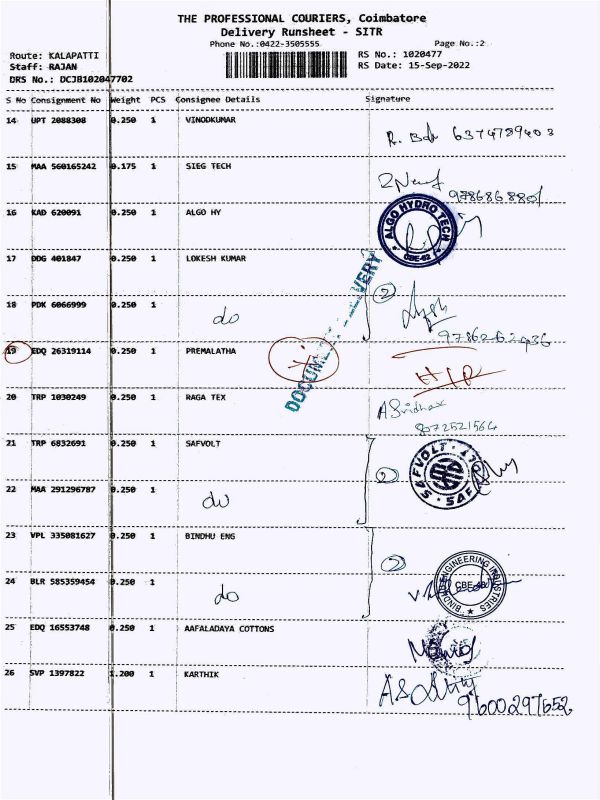 THE PROFESSIONAL COURIERS, Coimbatore
Delivery Runsheet - SITR
Phone No.:0422-3505555 Page No.:2
Route: KALAPATTI RS No.: 1020477
Staff: RAJAN RS Date: 15-Sep-2022
DRS No.: DCJB102047702
S No Consignment No Weight PCS Consignee Details Signature
14 UPT 2088308 0.250 1 VINODKUMAR
6374789403
15 MAA 560165242 0.175 1 SIEG TECH
16 KAD 620091 0.250 1 ALGO HY
ALGO HYDRO TECH
CBE-62
17 DDG 401847 0.250 1 LOKESH KUMAR
18 PDK 6066999 0.250 1 do 2
19 EDQ 26319114 0.250 1 PREMALATHA
20 TRP 1030249 0.250 1 RAGA TEX A Sridhar
8072521564
21 TRP 6832691 0.250 1 SAFVOLT 2
SAFVOLT
22 MAA 291296787 0.250 1 do
23 VPL 335081627 0.250 1 BINDHU ENG 2
BINDHU ENGINEERING INDUSTRIES
24 BLR 585359454 0.250 1 do
25 EDQ 16553748 0.250 1 AAFALADAYA COTTONS
26 SVP 1397822 1.200 1 KARTHIK
9600297652